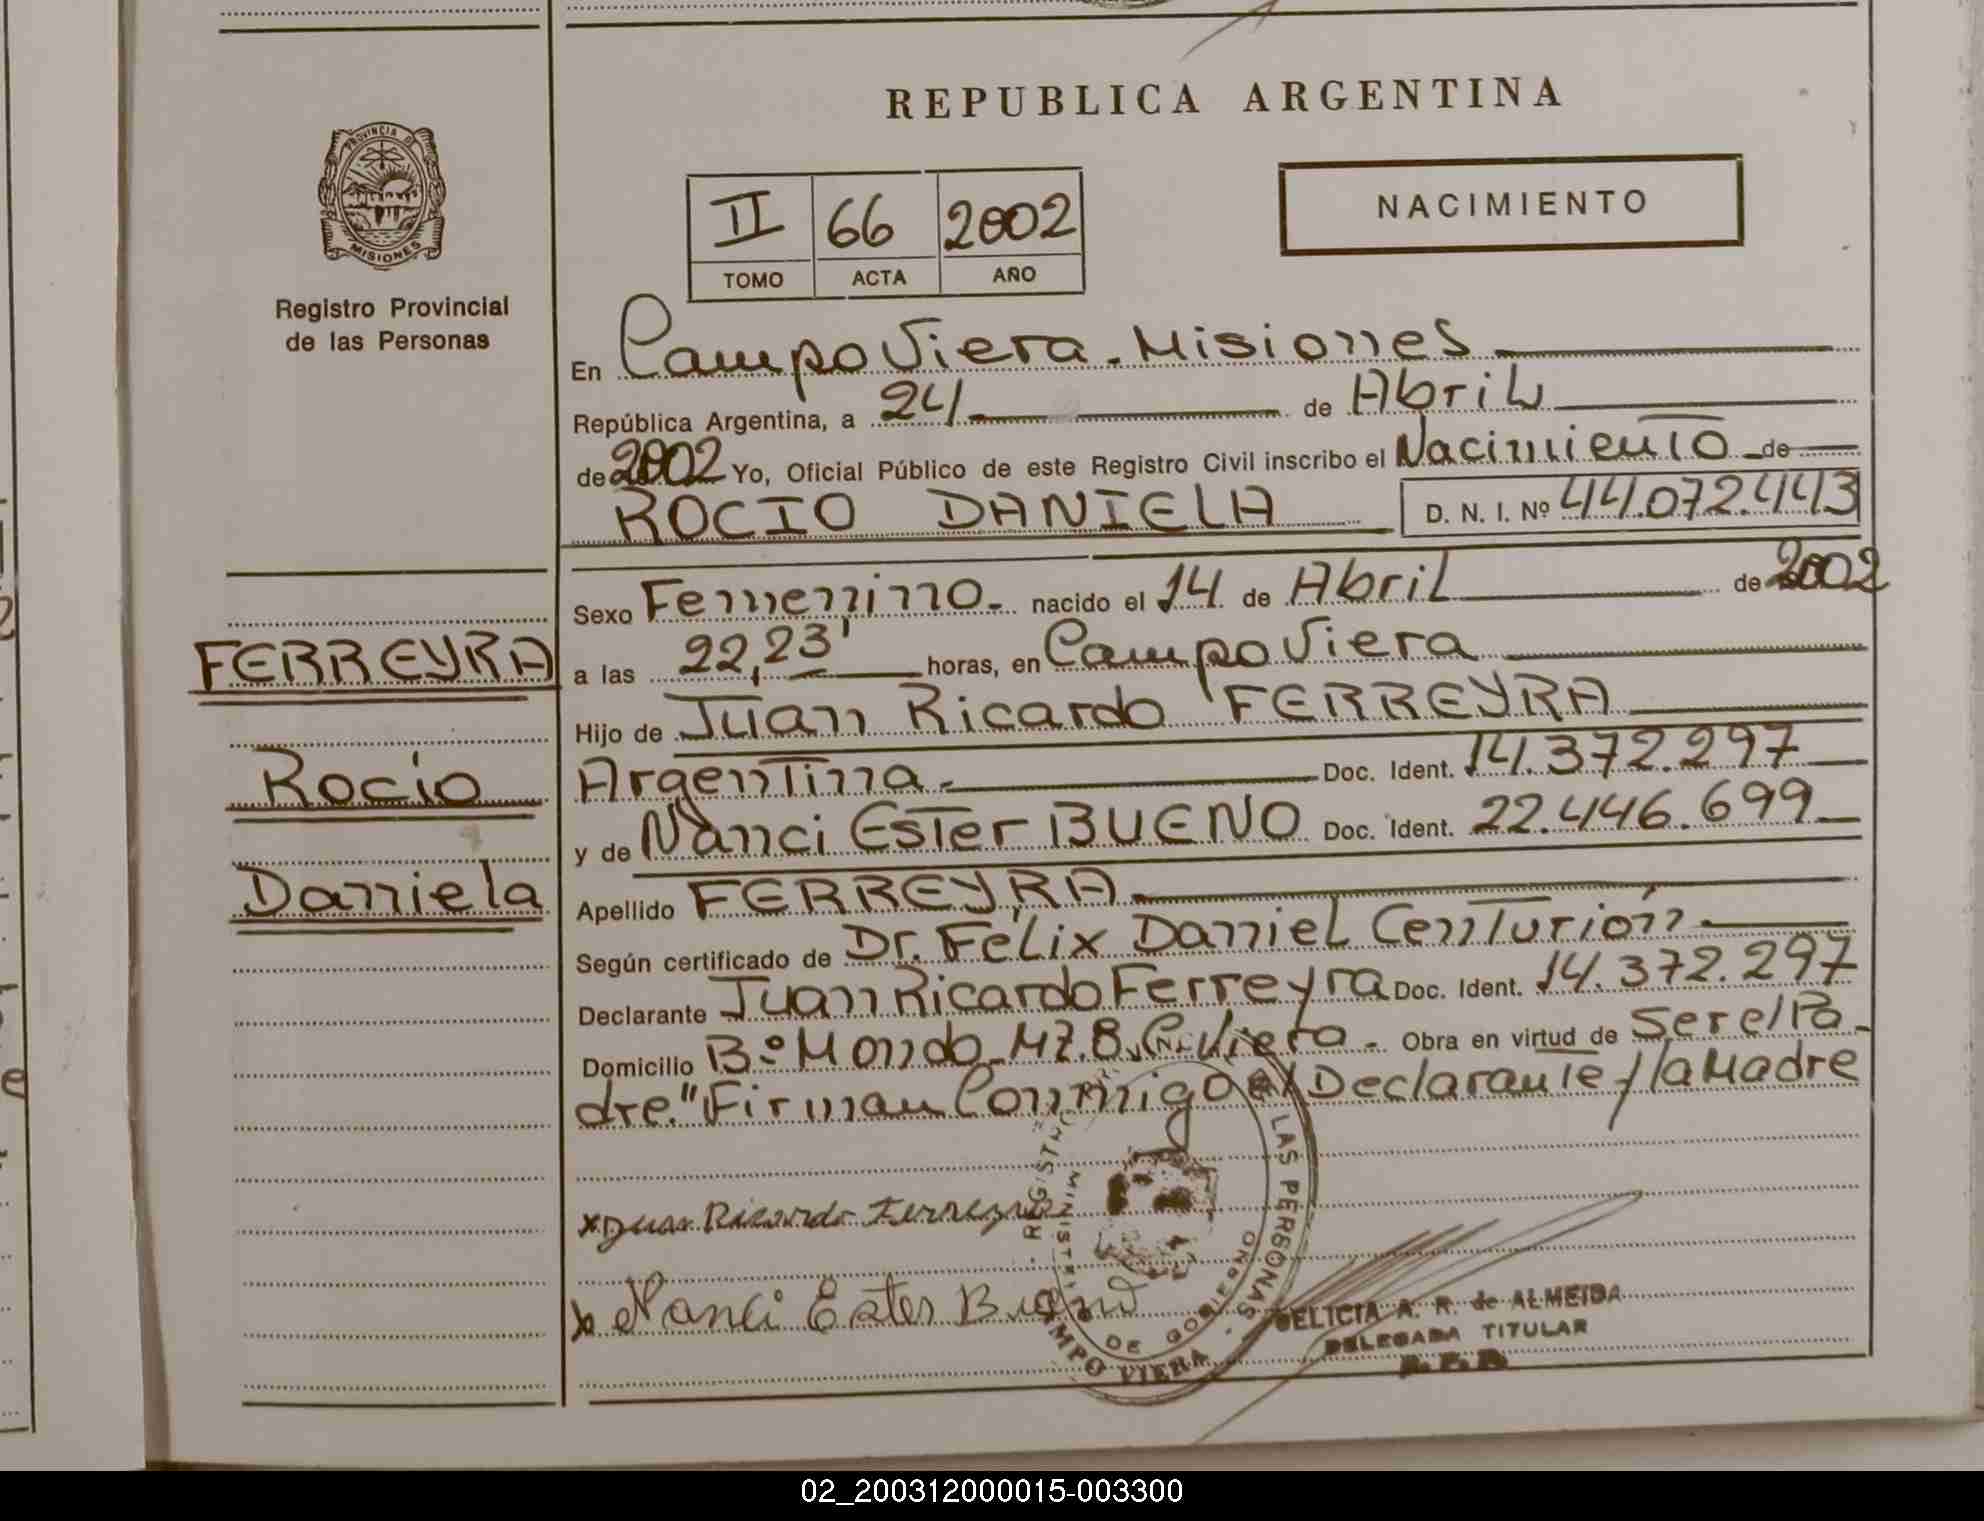 REPUBLICA ARGENTINA
PROVINCIA DE
MISIONES
Registro Provincial
de las Personas
II 66 2002
TOMO ACTA AÑO
NACIMIENTO
En Campo Viera - Misiones
República Argentina, a 24 de Abril
de 2002 Yo, Oficial Público de este Registro Civil inscribo el Nacimiento de
ROCIO DANIELA D. N. I. Nº 44.072.443
Sexo Femenino - nacido el 14 de Abril de 2002
FERREYRA
a las 22,23' horas, en Campo Viera
Hijo de Juan Ricardo FERREYRA
Rocio
Argentina - Doc. Ident. 14.372.297
y de Nanci Ester BUENO Doc. Ident. 22.446.699
Daniela
Apellido FERREYRA
Según certificado de Dr. Félix Daniel Centurión
Declarante Juan Ricardo Ferreyra Doc. Ident. 14.372.297
Domicilio Bº Mondo - MZ. 8 Viera - Obra en virtud de Ser el Pa-
dre." Firman Conmigo el Declarante y la Madre
Juan Ricardo Ferreyra
Nanci Ester Bueno
REGISTRO LAS PERSONAS
DE GOBIERNO
CAMPO VIERA
DELICIA A. R. de ALMEIDA
DELEGADA TITULAR
02_200312000015-003300